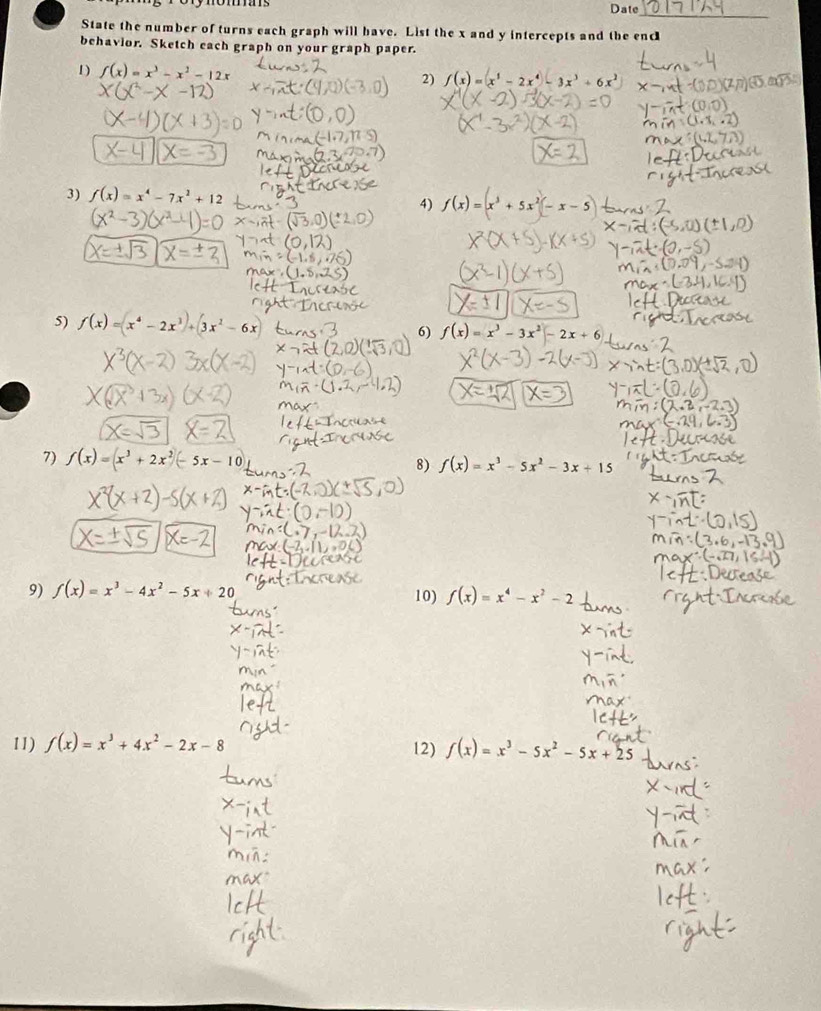 Date 10/17/24
State the number of turns each graph will have. List the x and y intercepts and the end
behavior. Sketch each graph on your graph paper.
1) f(x) = x³ - x² - 12x turns: 2
x(x² - x - 12) x-int: (4,0)(-3,0)
(x-4)(x+3)=0 y-int: (0,0)
x-4 x=-3
left Decrease
right Increase
2) f(x) = (x⁵ - 2x⁴) - 3x³ + 6x² turns = 4
x⁴(x-2) -3(x-2) = 0
y-int: (0,0)
(x⁴-3x²)(x-2)
x=2
left: Decrease
right: Increase
3) f(x) = x⁴ - 7x² + 12 turns: 3
(x²-3)(x²-4)=0 x-int: (√3,0)(±2,0)
y-int: (0,12)
x=±√3 x=±2
left Increase
right: Increase
4) f(x) = (x³ + 5x²)(- x - 5) turns: 2
x-int: (-5,0)(±1,0)
x²(x+5)-1(x+5) y-int: (0,-5)
(x²-1)(x+5)
x=±1 x=-5 left: Decrease
right: Increase
5) f(x) = (x⁴ - 2x³) + (3x² - 6x) turns: 3
x³(x-2) 3x(x-2) x-int (2,0)(±√3,0)
y-int: (0,-6)
x(x³+3x)(x-2)
max:
x=√3 x=2 left: Increase
right: Increase
6) f(x) = x³ - 3x² - 2x + 6 turns: 2
x²(x-3) -2(x-3) x-int: (3,0)(±√2,0)
y-int: (0,6)
x=±√2 x=3 min: (2.2,-2.3)
max: (-.29, 6.3)
left: Decrease
right: Increase
7) f(x) = (x³ + 2x²)(- 5x - 10) turns: 2
x²(x+2)-5(x+2) x-int: (-2,0)(±√5,0)
y-int: (0,-10)
x=±√5 x=-2 min: (.7,-12.2)
left: Decrease
right: Increase
8) f(x) = x³ - 5x² - 3x + 15 turns 2
x-int:
y-int: (0,15)
min: (3.6,-13.9)
left: Decrease
right: Increase
9) f(x) = x³ - 4x² - 5x + 20
turns:
x-int:
y-int:
min:
max:
left
right:
10) f(x) = x⁴ - x² - 2 turns:
x-int:
y-int.
min:
max:
left:
right
11) f(x) = x³ + 4x² - 2x - 8
turns:
x-int
y-int:
min:
max:
left
right:
12) f(x) = x³ - 5x² - 5x + 25 turns:
x-int:
y-int:
min:
max:
left:
right: